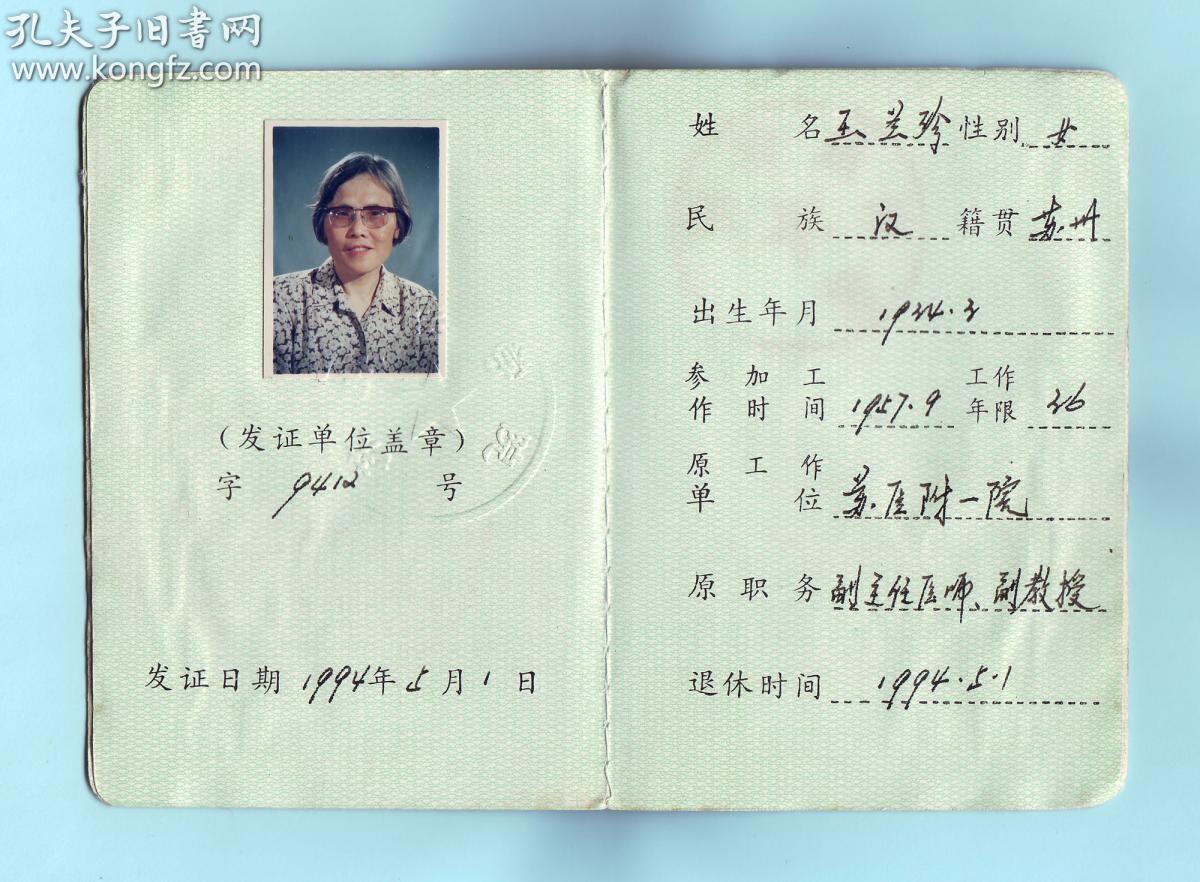 孔夫子旧书网
www.kongfz.com
(发证单位盖章)
字 9412 号
发证日期 1994年5月1日
姓名 王兰珍 性别 女
民族 汉 籍贯 苏州
出生年月 1934.3
参加工作时间 1957.9 工作年限 36
原工作单位 苏医附一院
原职务 副主任医师、副教授
退休时间 1994.5.1